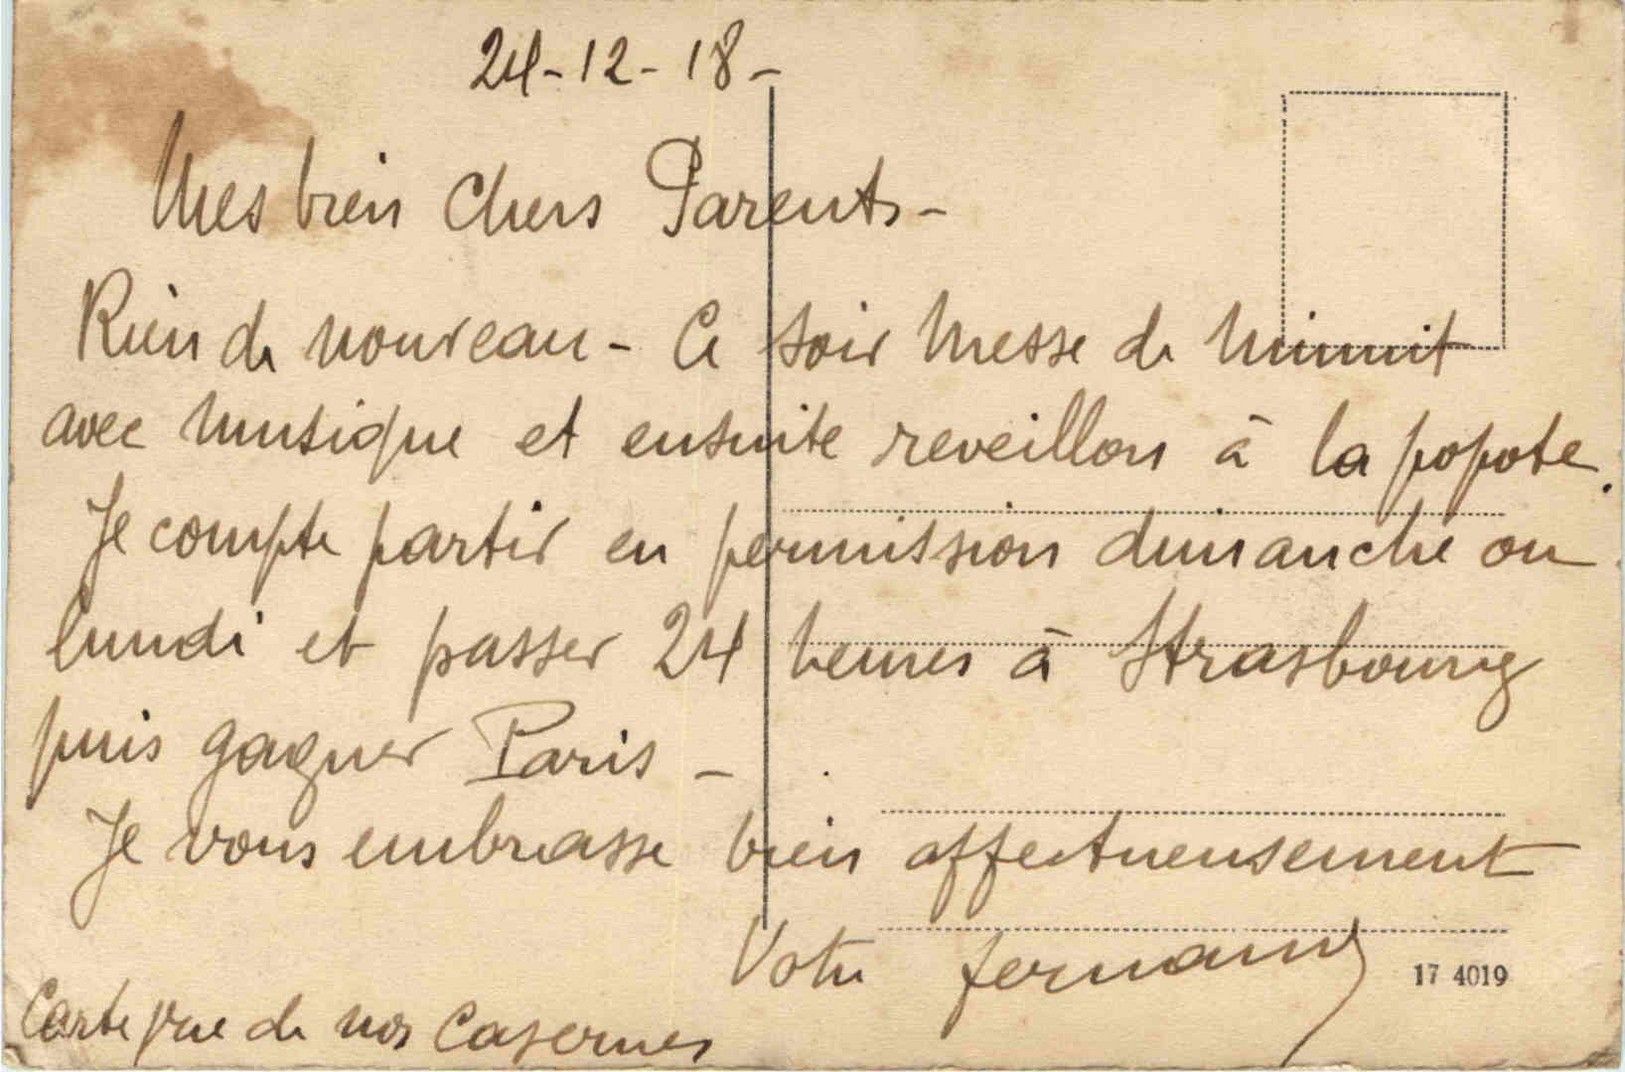 24-12-18-
Mes bien Chers Parents-
Rien de nouveau - Ce soir Messe de Minuit
avec musique et ensuite reveillon à la popote.
Je compte partir en permission dimanche ou
lundi et passer 24 heures à Strasbourg
puis gagner Paris -
Je vous embrasse bien affectueusement
Votre Fernand
17 4019
Carte vue de nos Casernes